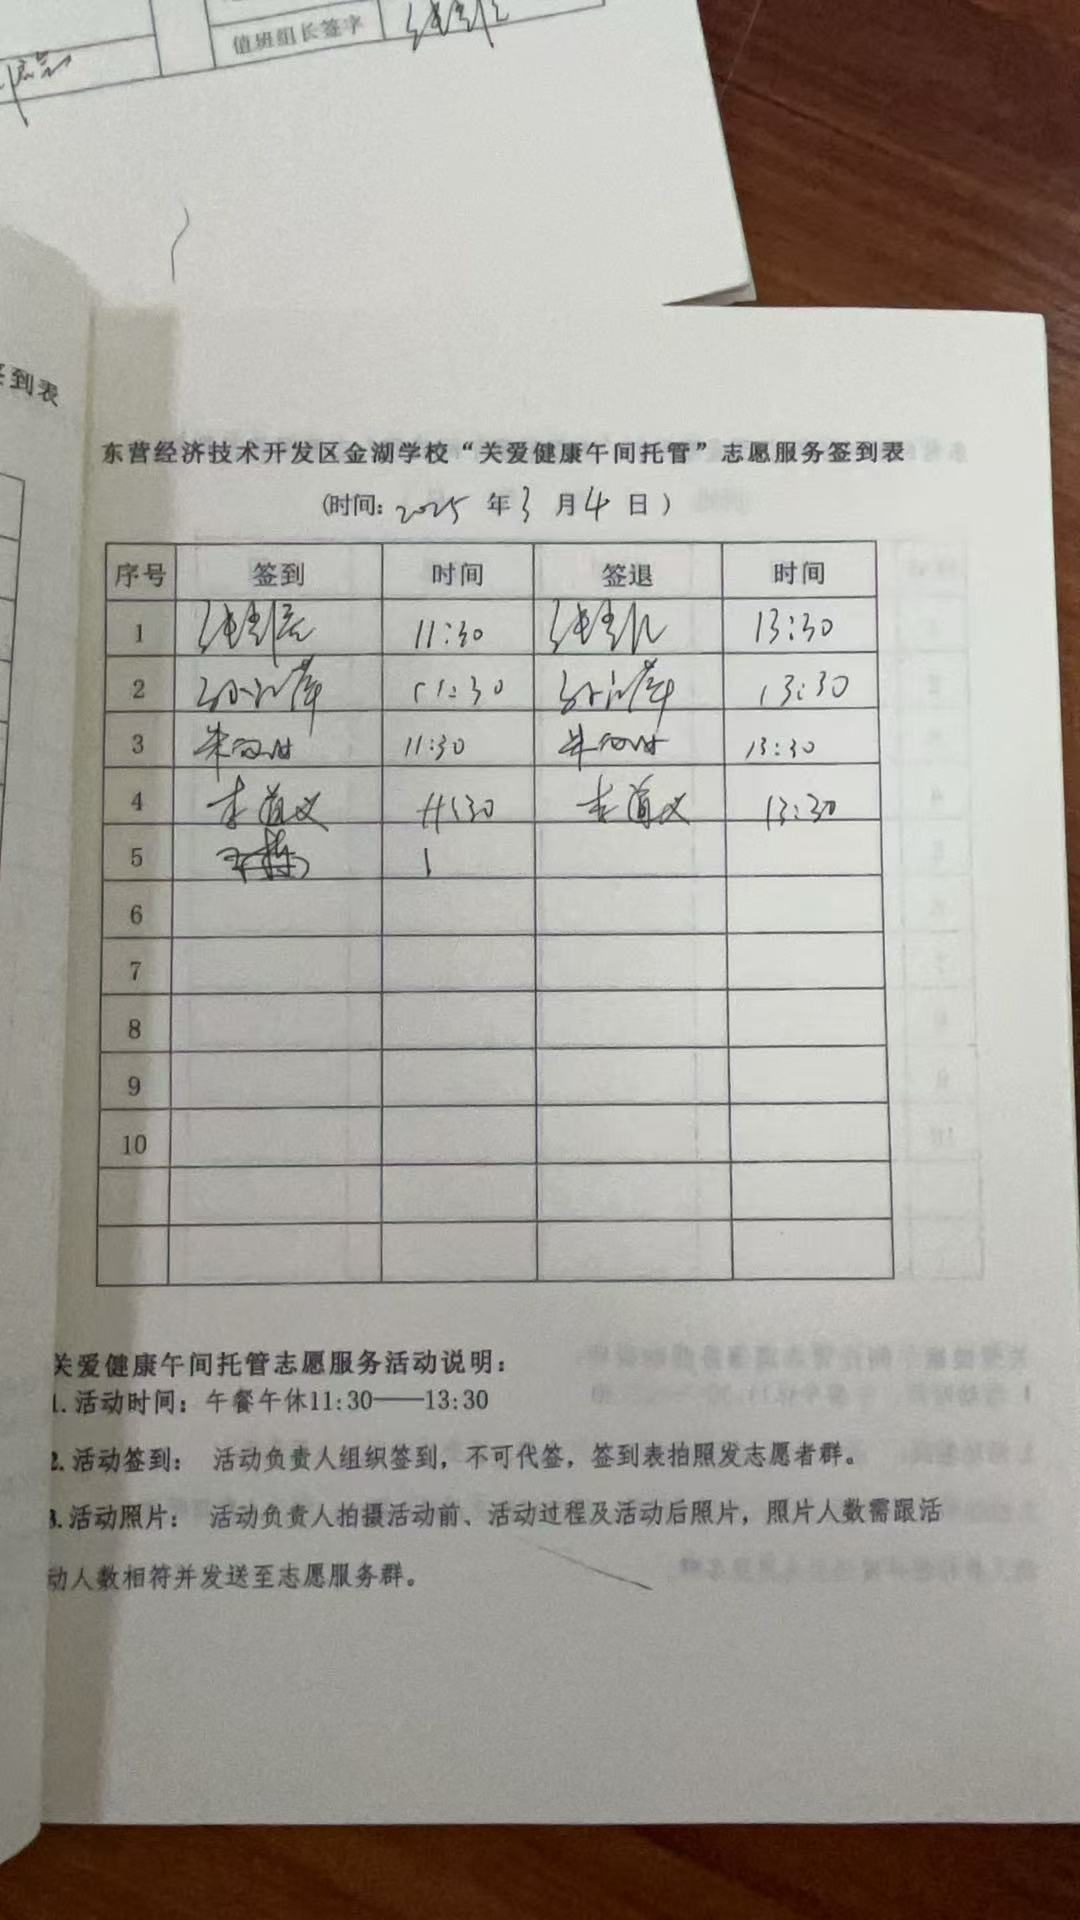 值班组长签字
签到表
东营经济技术开发区金湖学校“关爱健康午间托管”志愿服务签到表
(时间: 2025 年 3 月 4 日 )
序号 签到 时间 签退 时间
1 11:30 13:30
2 11:30 13:30
3 11:30 13:30
4 李道义 11:30 李道义 13:30
5
6
7
8
9
10
关爱健康午间托管志愿服务活动说明:
1.活动时间: 午餐午休11:30——13:30
2.活动签到: 活动负责人组织签到, 不可代签, 签到表拍照发志愿者群。
3.活动照片: 活动负责人拍摄活动前、活动过程及活动后照片, 照片人数需跟活
动人数相符并发送至志愿服务群。